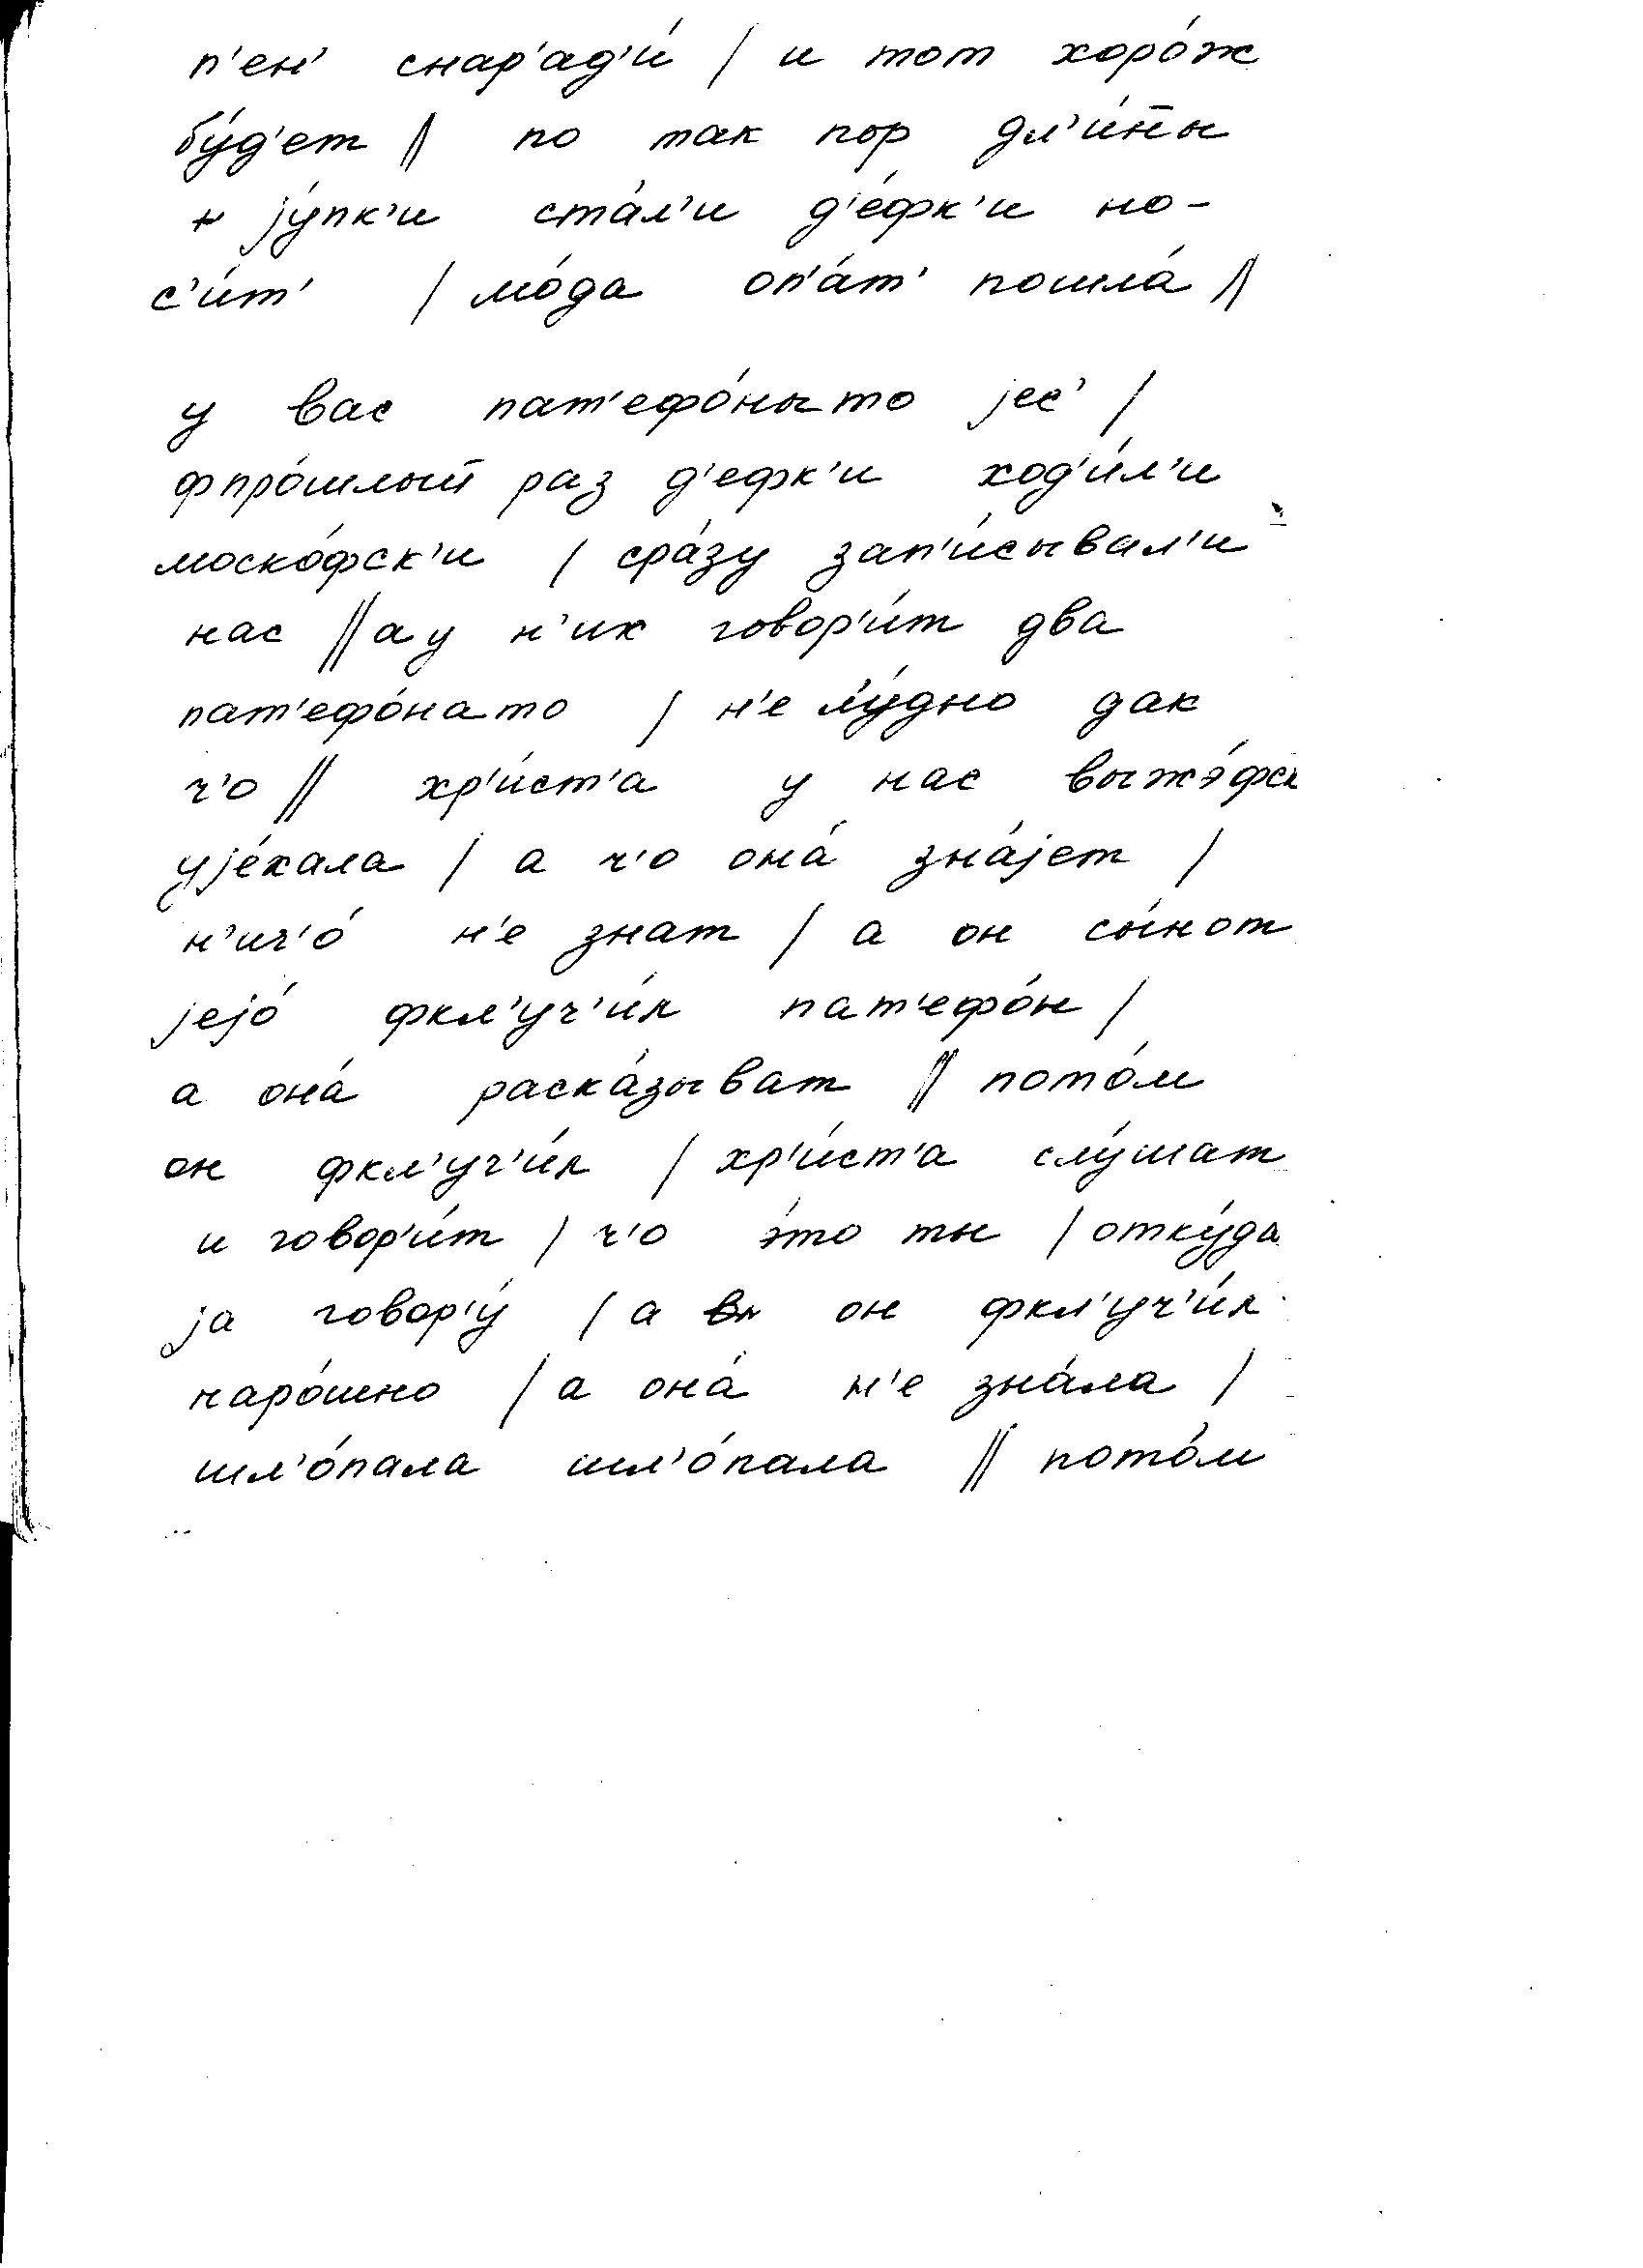 п'ен' снар'ад'и́ / и тот хоро́ж
бу́д'ет // по так пор дл'и́н̄ы
jу́пк'и ста́л'и д'е́фк'и но-
с'и́т' / мо́да оп'а́т' пошла́ //
у вас пат'ефо́ныто jес' /
фпро́шлыӣ раз д'ефк'и ход'и́л'и
моско́фск'и / сра́зу зап'и́сывал'и
нас // а у н'их говор'и́т два
пат'ефо́нато / н'е л'у́дно дак
ч'о // хр'и́ст'а у нас выжэ́фск
ује́хала / а ч'о она́ зна́јет /
н'ич'о́ н'е знат / а он сы́нот
јејо́ фкл'уч'и́л пат'ефо́н /
а она́ раска́зыват // пото́м
он фкл'уч'и́л / хр'и́ст'а слу́шат
и говор'и́т / ч'о э́то ты / отку́да
ја говор'у́ / а он фкл'уч'и́л
наро́шно / а она́ н'е зна́ла /
шл'о́пала шл'о́пала // пото́м